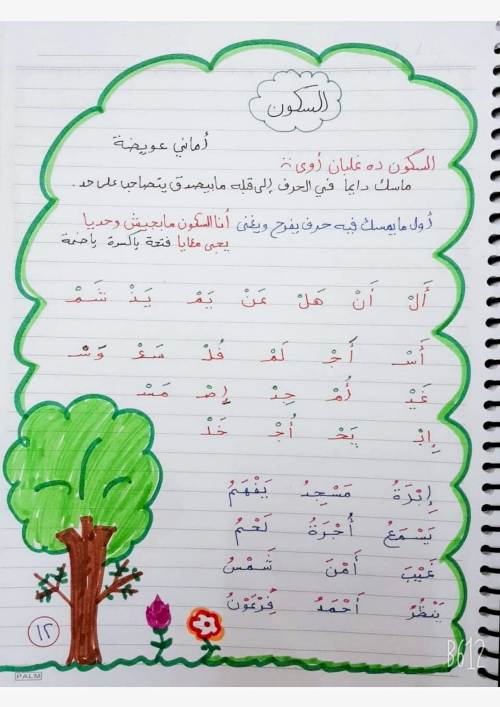 السكون
أماني عويضة
السكون ده غلبان أوى
ماسك دايما في الحرف إلى قبله مابيصدق يتصاحب على حد.
أول مايمسك فيه حرف يفرح ويغنى أنا السكون مابجيش وحديا
يجى معايا فتحة ياكسرة ياضمة
أَلْ أَنْ هَلْ عَنْ يَمْ يَذْ شَمْ
أَسْ أَجْ لَمْ فُلْ سَعْ وَسْ
عَيْ أُمْ جِدْ إِصْ مَسْ
إِبْ يَحْ أُجْ خَدْ
إِبْرَةُ مَسْجِدُ يَفْهَمُ
يَسْمَعُ أُجْرَةُ لَحْمُ
غَيْبَ أَمْنَ شَمْسُ
يَنْظُرُ أَحْمَدُ فِرْعَوْنُ
١٢
PALM
B612